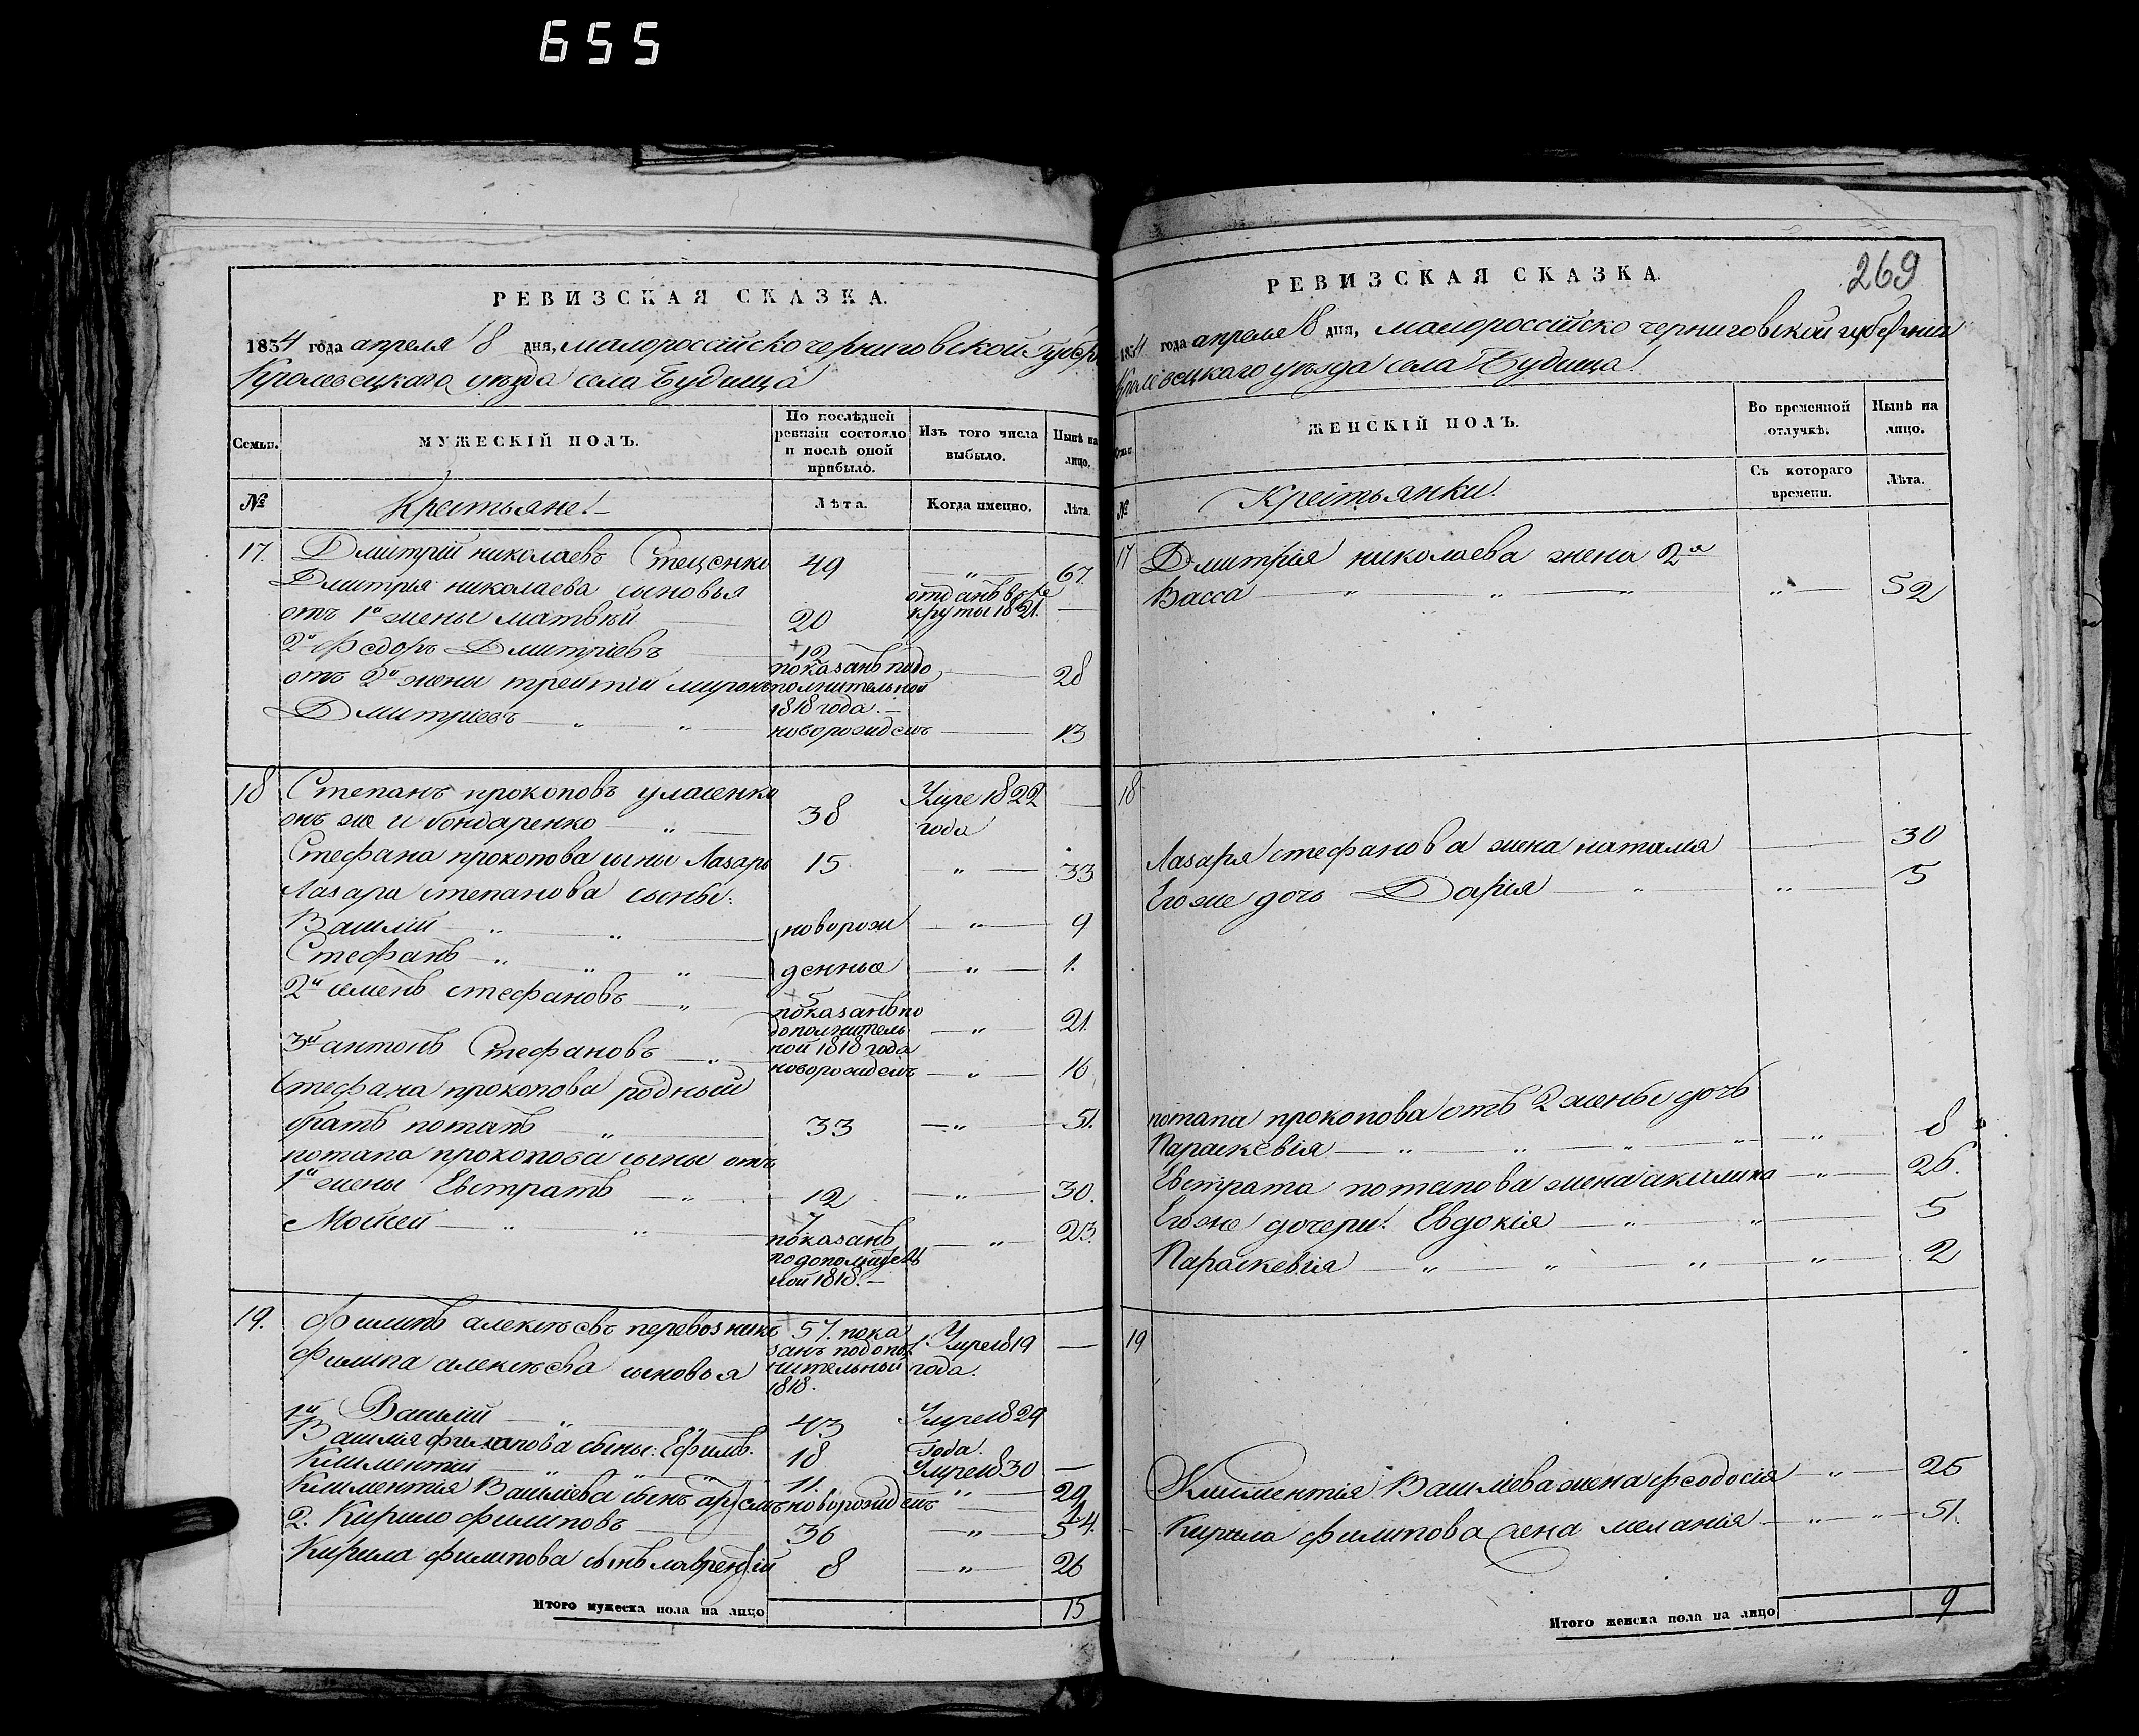 655
РЕВИЗСКАЯ СКАЗКА.
1834 года апреля 18 дня, малороссійско черниговской Губер
Кролевецкаго уѣзда села Будища
Семьи.
МУЖЕСКІЙ ПОЛЪ.
По послѣдней ревизіи состояло и послѣ оной прибыло.
Изъ того числа выбыло.
Нынѣ на лицо.
№
Крестьяне.
Лѣта.
Когда именно.
Лѣта.
17. Дмитрій николаевъ Стеценко 49 — „ — 67.
Дмитрія николаева сыновья
отъ 1й жены матвѣй 20 отданъ в рекруты 1821. —
2й Федоръ Дмитріевъ 12 показанъ по дополнительной 1818 года. — 28
отъ 2й жены третій миронъ
Дмитріевъ — „ „ новорожденъ — 13
18 Степанъ прокоповъ уласенко 38 Умре 1822 года —
онъ же и бондаренко — „ —
Стефана прокопова сыны Лазарь 15 — „ — 33
Лазаря степанова сыны:
Василій — „ „ — новорож — „ — 9
Стефанъ — „ „ „ — денные — „ — 1.
2й семенъ стефановъ — „ 5 показанъ по дополнительной 1818 года — „ — 21.
3й антонъ Стефановъ — „ новорожденъ — „ — 16
Стефана прокопова родный
братъ потапъ — „ — 33 — „ — 51.
потапа прокопова сыны отъ
1й жены Евстратъ — „ — 12 — „ — 30.
Моисей — „ „ — 7 показанъ по дополнительной 1818. — — „ — 23.
19. Филипъ алексѣевъ перевозникъ 57. показанъ по дополнительный 1818. Умре 1819 года. —
Филипа алексѣева сыновья
1й Василій — „ — 43 Умре 1829 года.
Василія филипова сыны: Ефимъ. 18 Умре 1830 —
Климентій — „ „ „ 11. — „ — 29
Климентія Василіева сынъ новорожденъ — „
2. Кирило филиповъ — 36 — „ — 54.
Кирила филипова сынъ лаврентій 8 — „ — 26
Итого мужеска пола на лицо 15
269
РЕВИЗСКАЯ СКАЗКА.
1834 года апреля 18 дня, малороссійско черниговской губерніи
Кролевецкаго уѣзда села Будища.
ЖЕНСКІЙ ПОЛЪ.
Во временной отлучкѣ.
Нынѣ на лицо.
№
Крестьянки.
Съ котораго времени.
Лѣта.
17 Дмитрія николаева жена 2я
Васса — „ „ — „ „ — 52
18
Лазаря стефанова жена наталія — 30
Его же дочь Дарія — „ „ — 5
потапа прокопова отъ 2 жены дочь
Параскевія — „ „ „ „ — „ 8
Евстрата потапова жена акилина — „ — 26.
Его же дочери: Евдокія — „ „ — 5
Параскевія — „ „ „ — „ — 2
19
Климентія Василіева жена феодосія — „ — 25
Кирила филипова жена меланія — „ — „ — 51.
Итого женска пола на лицо 9